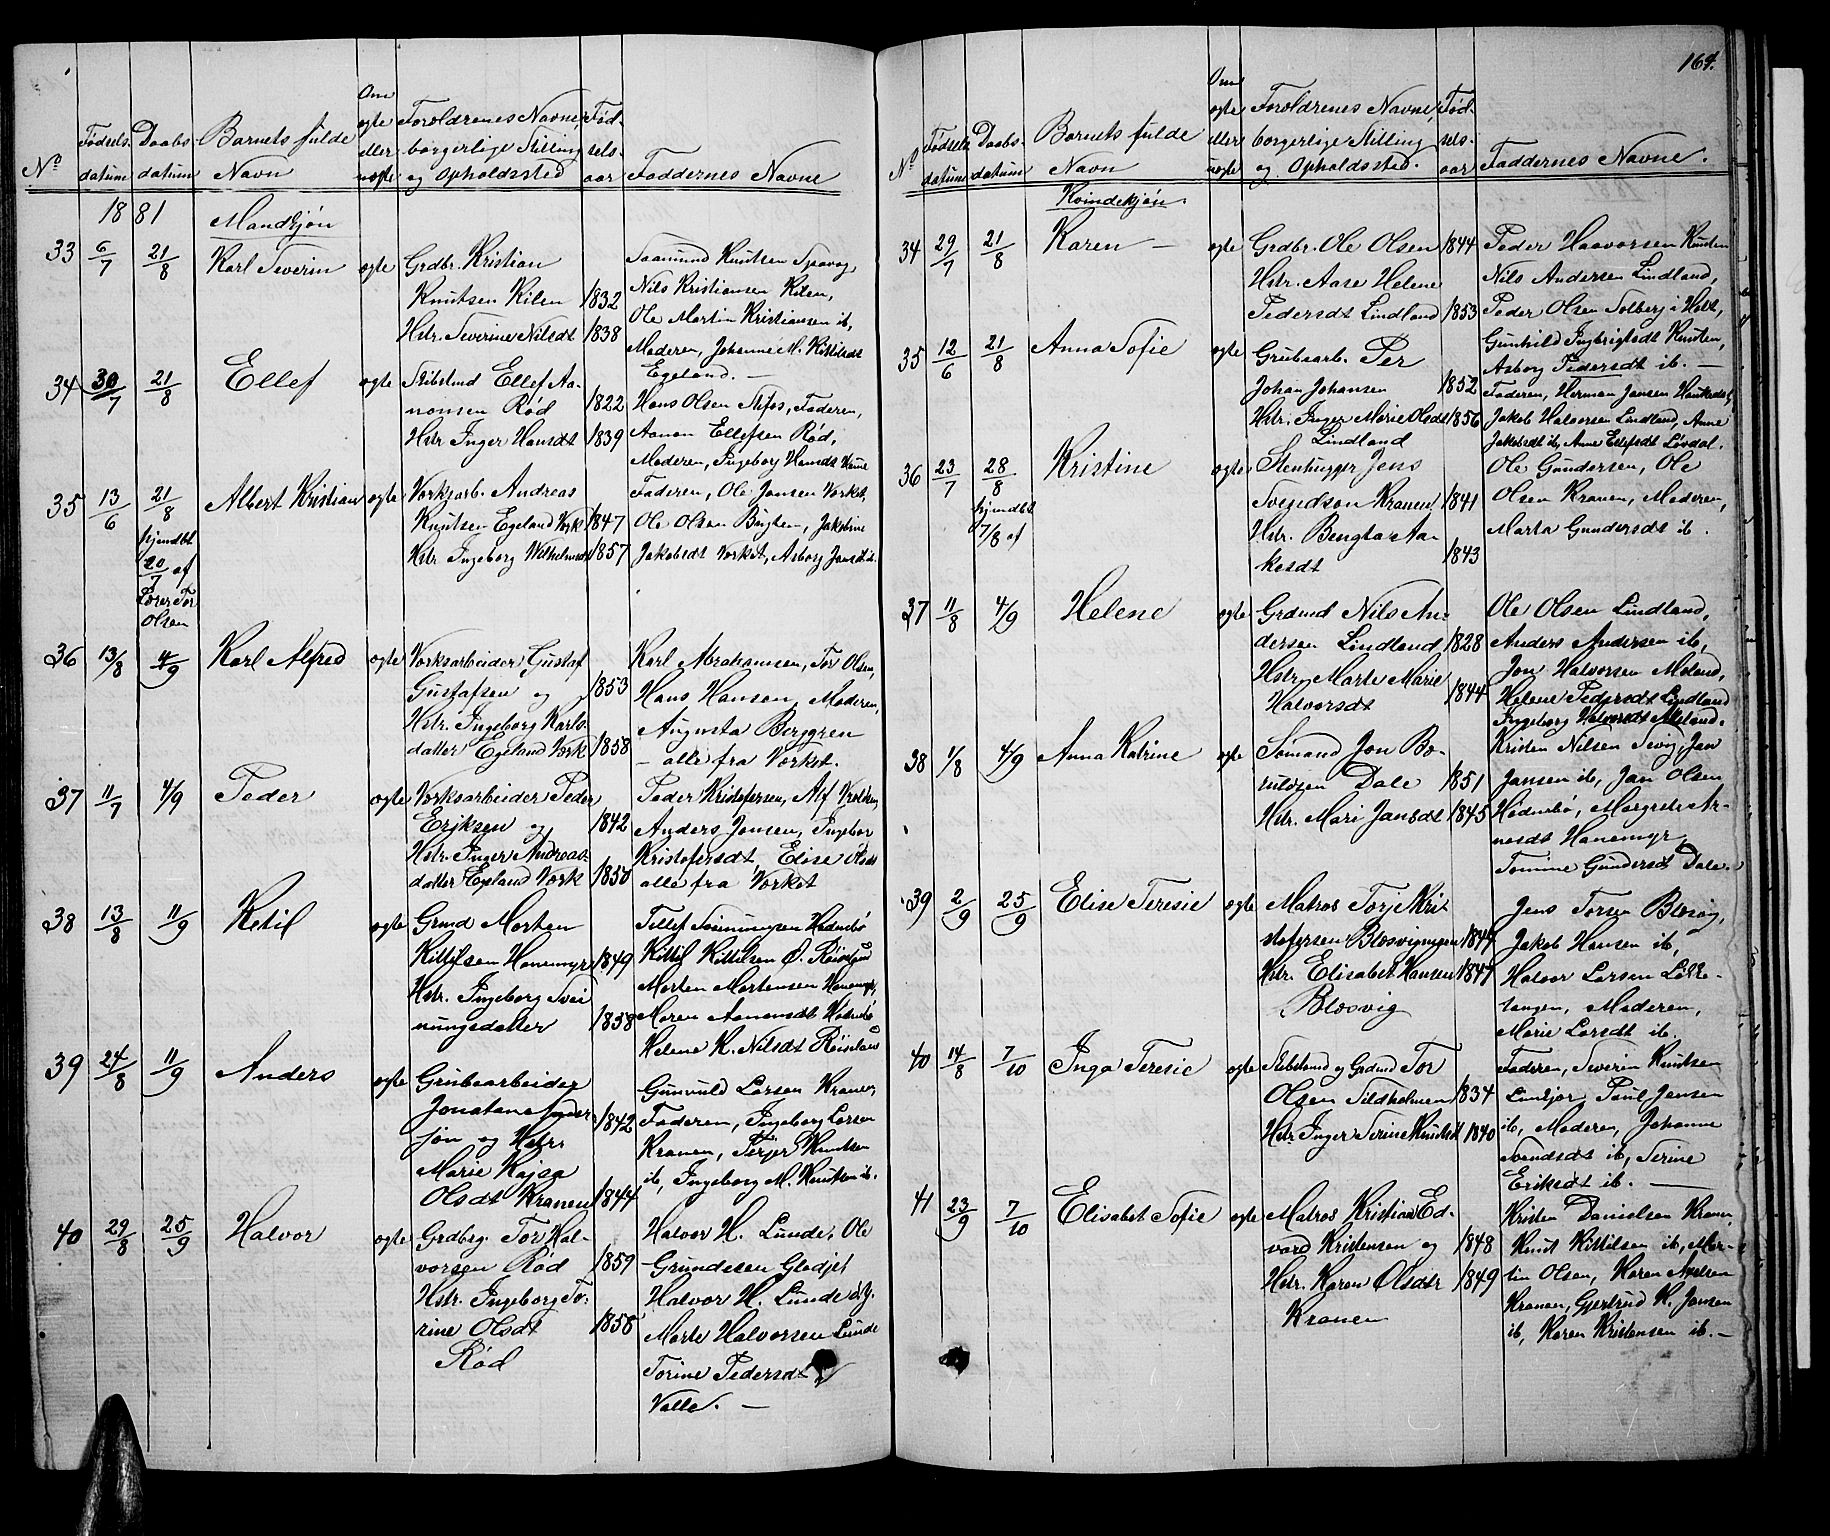 164.
No
Fødsels-
datum
Daabs-
datum
Barnets fulde
Navn
Om
ægte
eller
uægte
Forældrenes Navne,
borgerlige Stilling
og Opholdssted
Fød-
sels-
aar
Faddernes Navne
1881
Mandkjøn
33 6/7 21/8 Karl Severin ægte Grdbr. Kristian
Knutsen Kilen 1832
Hstr. Severine Nilsdt 1838
Saamund Knutsen
Nils Kristiansen Kilen,
Ole Martin Kristiansen ib,
Moderen, Johanne M. Kittilsdt
Egeland. —
34 30/7 21/8 Ellef ægte Skibstmd Ellef Aa-
nonsen Rød 1822
Hstr. Inger Hansdt 1839
Hans Olsen Stifos, Faderen,
Aanon Ellefsen Rød,
Moderen, Ingeborg Hansdt
35 13/6 21/8 Albert Kristian ægte Værksarb. Andreas
hjemdbt
20/7 af
Lærer Tor
Olsen
Knutsen Egeland Værk 1847
Hstr. Ingeborg Vilhelmsdt 1857
Faderen, Ole Jensen Værket,
Ole Olsen Bugten, Jakobine
Jakobsdt Værket, Asborg Jensdt ib.
36 13/8 4/9 Karl Alfred ægte Værksarbeider Gustaf
Gustafsen og 1853
Hstr. Ingeborg Karls-
datter Egeland Værk 1858
Karl Abrahamsen, Tor Olsen,
Hans Hansen, Moderen,
Augusta Berggren
— alle fra Værket.
37 11/7 4/9 Peder ægte Værksarbeider Peder
Eriksen og 1842
Hstr. Inger Andreas-
datter Egeland Værk 1850
Peder Kristofersen, Alf
Anders Jensen, Ingebor
Kristofersdt, Elise Olsdt
alle fra Værket
38 13/8 11/9 Ketil ægte Grmd Morten
Kittilsen Hanemyr 1849
Hstr. Ingeborg Svei
nungsdatter 1858
Tellef Sveinungsen Hødnebø
Kittil Kittilsen Ø. Røiseland
Morten Mortensen Hanemyr,
Maren Aanonsdt Hødnebø
Helene K. Nilsdt Røiseland
39 24/8 11/9 Anders ægte Grubearbeider
Jonatan Ander
søn og Hstr. 1842
Marie Kajsa
Olsdt Kranen 1844
Gunvuld Larsen Kranen,
Faderen, Ingeborg Larsen
Kranen, Terjer Knutsen
ib, Ingeborg M. Knutsen ib.
40 29/8 25/9 Halvor ægte Grdbrg. Tor Hal-
vorsen Rød 1859
Hstr. Ingeborg To-
rine Olsdt 1858
Rød
Halvor H. Lunde, Ole
Grundesen Gladjet
Halvor H. Lunde d.y.
Marte Halvorsen Lunde
Torine Pedersdt
Valle. —
No
Fødsels
datum
Daabs-
datum
Barnets fulde
Navn
Om
ægte
eller
uægte
Forældrenes Navne,
borgerlige Stilling
og Opholdssted.
Fød-
sels-
aar
Faddernes Navne.
Kvindekjøn.
34 29/7 21/8 Karen — ægte Grdbr. Ole Olsen 1844
Hstr. Aase Helene
Pedersdt Lindland 1853
Peder Haavorsen Knuten
Nils Andersen Lindland,
Peder Olsen Solberg i Holt,
Gunhild Ingbrigtsdt Knuten,
Asborg Pedersdt ib. —
35 12/6 21/8 Anna Sofie ægte Grubearb. Per
Johan Johansen 1852
Hstr. Inger Marie Olsdt 1856
Lindland
Faderen, Herman Jensen
Jakob Halvorsen Lindland, Anne
Jakobsdt ib, Anne Ellefsdt Løvdal.
36 23/7 28/8 Kristine ægte Stenhugger Jens
hjemdbt
7/8 af
Svendson Kranen 1841
Hstr. Bengta Aa-
kesdt 1843
Ole Gundersen, Ole
Olsen Kranen, Moderen,
Marta Gundersdt ib.
37 11/8 4/9 Helene ægte Grdmd Nils An-
dersen Lindland 1828
Hstr. Marte Marie
Halvorsdt 1844
Ole Olsen Lindland,
Anders Andersen ib,
Jon Halvorsen Meland,
Helene Pedersdt Lindland
Ingeborg Halvorsdt Meland.
38 1/8 4/9 Anna Katrine ægte Sømand Jon Bo-
Dale 1851
Hstr. Mari Jansdt 1845
Kristen Nilsen Sevig, Jan
Jansen ib, Jan Olsen
Hødnebø, Margrete Ar-
nesdt Hanemyr,
Tomine Gundersdt Dale.
39 2/9 25/9 Elise Teresie ægte Matros Torje Kri
stofersen 1847
Hstr. Elisabet Hansen 1847
Blæsvig
Jens Torsen Blæsvig,
Jakob Hansen ib,
Halvor Larsen Løkke-
tangen, Moderen,
Marie Larsdt ib.
40 14/8 7/10 Inga Teresie ægte Skibstmd og Grdmd Tor
Olsen Sildholmen 1834
Hstr. Inger Serine Knutsdt 1840
Faderen, Severin Knutsen
Paul Jensen
ib, Moderen, Johanne
Svendsdt ib, Serine
Eriksdt ib. —
41 23/9 7/10 Elisabet Sofie ægte Matros Kristian Ed-
vard Kristensen og 1848
Hstr. Karen Olsdtr 1849
Kranen
Kristen Danielsen Kranen,
Knut Kittilsen ib, Mar-
tin Olsen, Karen Axelsen
Kranen, Gjertrud K. Jansen
ib, Karen Kristensen ib. —